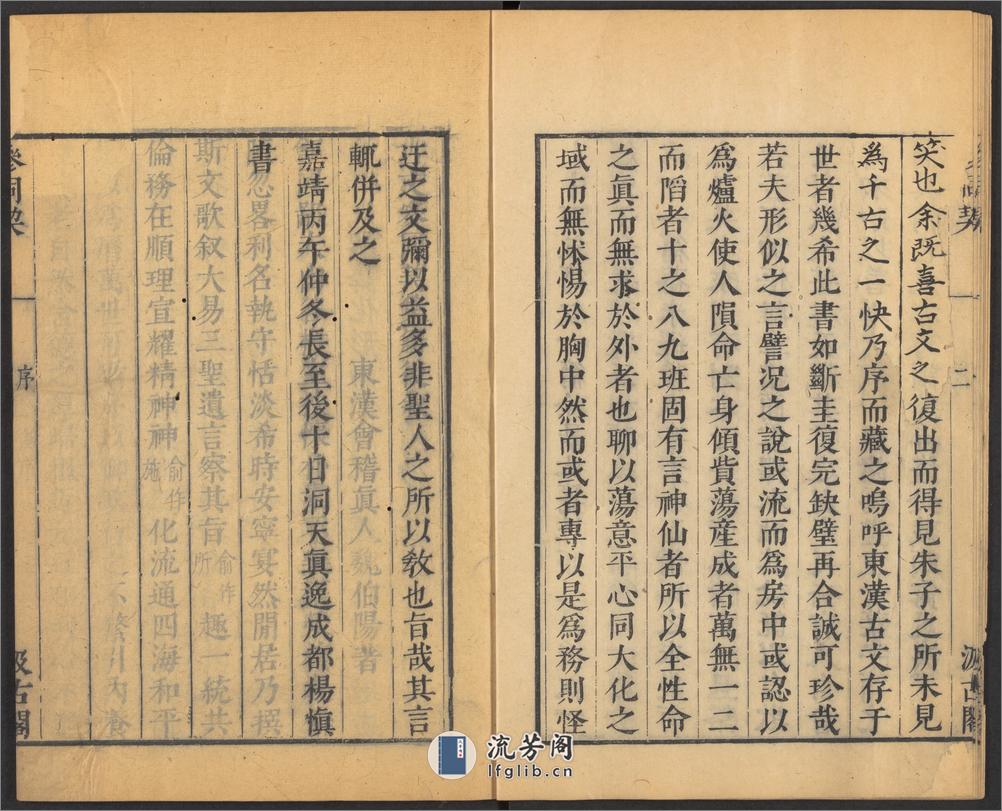 笑也余既喜古文之復出而得見朱子之所未見
為千古之一快乃序而藏之嗚呼東漢古文存于
世者幾希此書如斷圭復完缺璧再合誠可珍哉
若夫形似之言譬况之說或流而爲房中或認以
爲爐火使人隕命亡身傾貲蕩産成者萬無一二
而䧟者十之八九班固有言神仙者所以全性命
之真而無求於外者也聊以蕩意平心同大化之
域而無怵惕於胸中然而或者專以是爲務則怪
迂之文彌以益多非聖人之所以敎也旨哉其言
輒併及之
嘉靖丙午仲冬長至後十日洞天眞逸成都楊愼
書
二
汲古閣
參同契
序
汲古閣
流芳阁
lfglib.cn